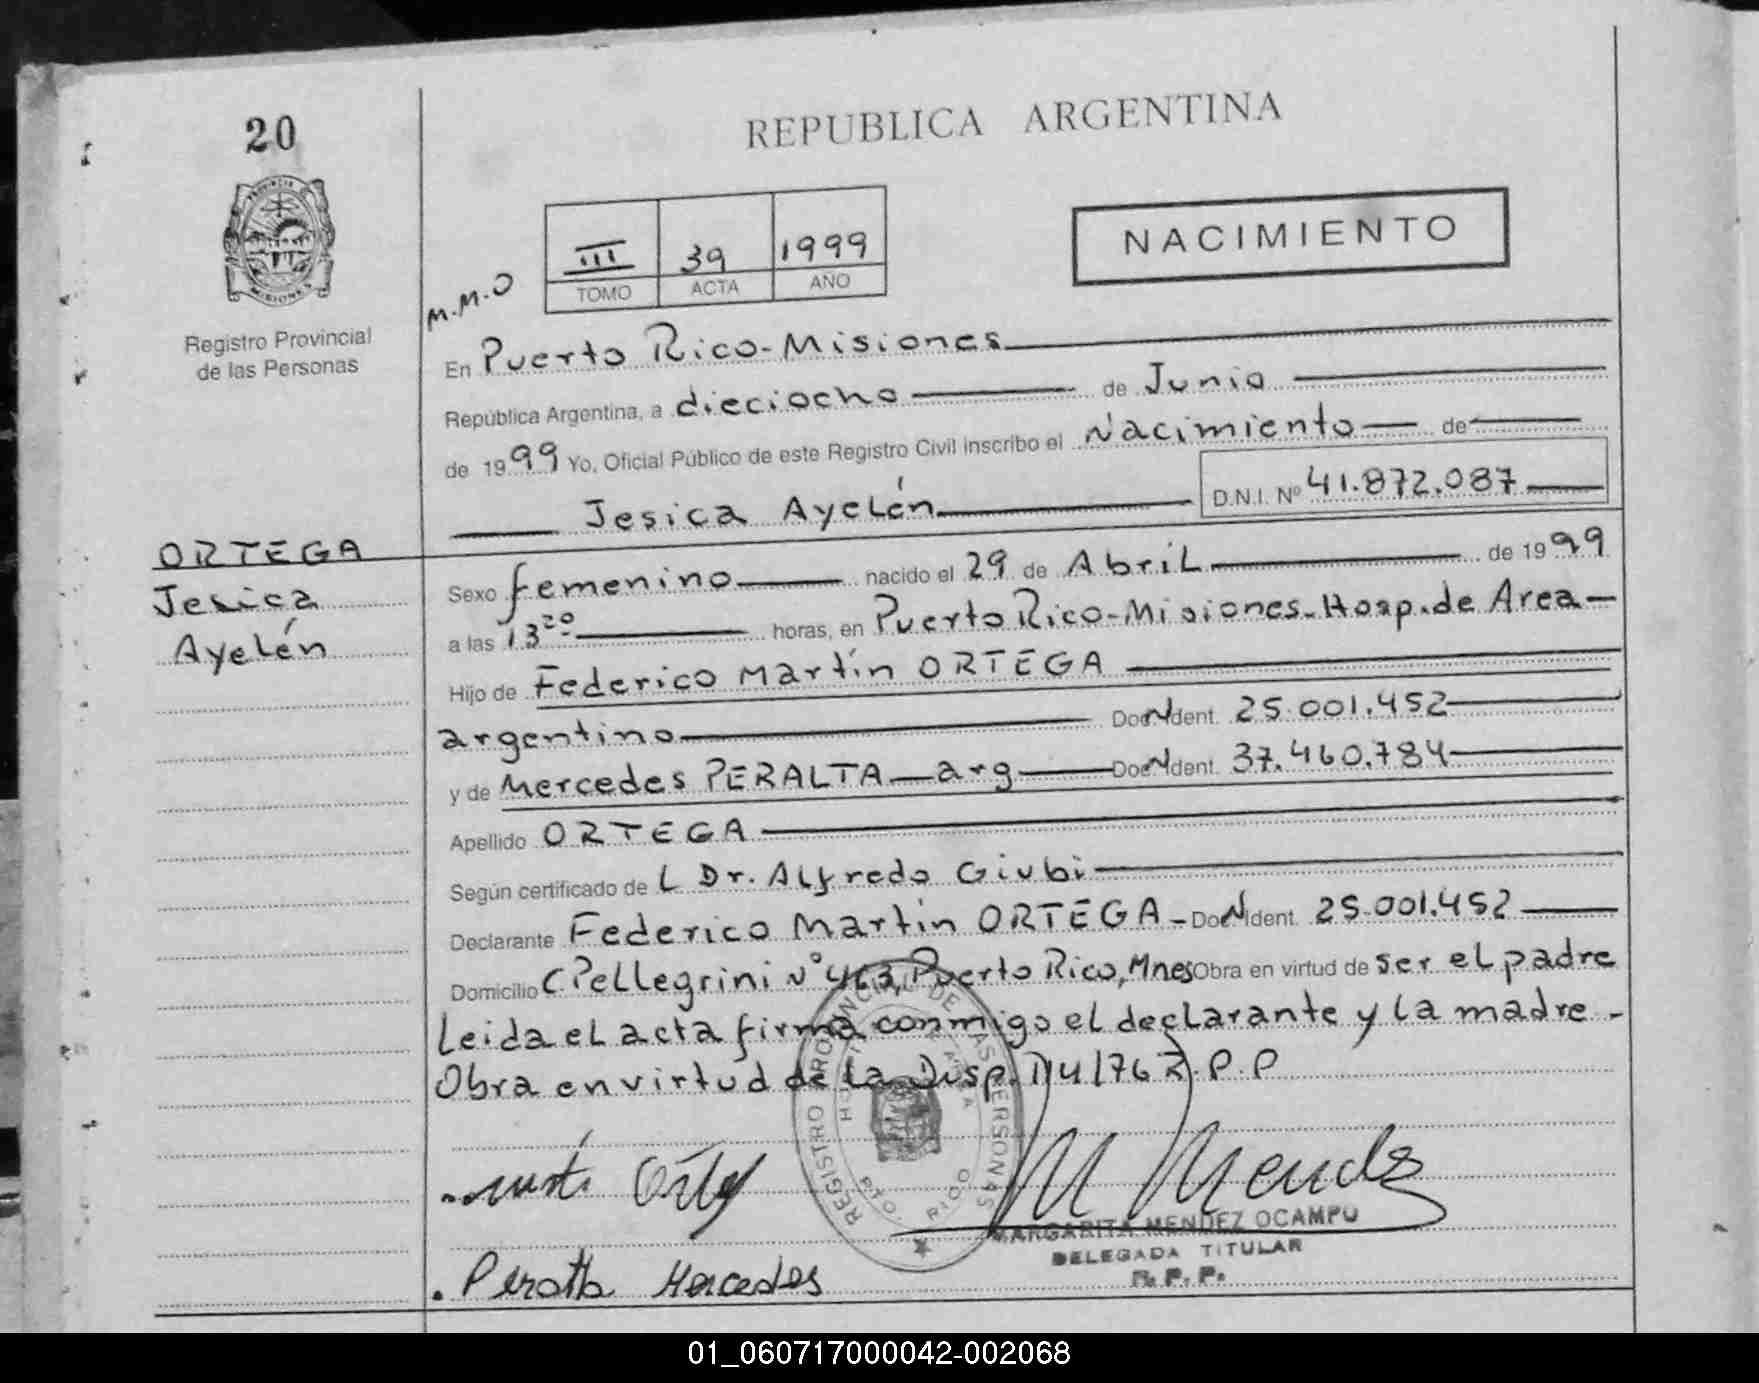 20
REPUBLICA ARGENTINA
PROVINCIA DE
MISIONES
Registro Provincial
de las Personas
III 39 1999
TOMO ACTA AÑO
NACIMIENTO
M.M.O
En Puerto Rico-Misiones
República Argentina, a dieciocho de Junio
de 1999 Yo, Oficial Público de este Registro Civil inscribo el Nacimiento de
Jesica Ayelén D.N.I. Nº 41.872.087
ORTEGA
Jesica
Ayelén
Sexo femenino nacido el 29 de Abril de 1999
a las 13 20 horas, en Puerto Rico-Misiones-Hosp.de Area
Hijo de Federico Martín ORTEGA
argentino Doc. Ident. 25.001.452
y de Mercedes PERALTA arg Doc. Ident. 37.460.784
Apellido ORTEGA
Según certificado de L Dr. Alfredo Giubi
Declarante Federico Martin ORTEGA - Doc. Ident. 25.001.452
Domicilio C.Pellegrini Nº 463, Puerto Rico, Mnes Obra en virtud de ser el padre
Leida el acta firma conmigo el declarante y la madre.-
Obra en virtud de la Disp. 114/76 R.P.P
REGISTRO PROVINCIAL DE LAS PERSONAS
PTO. RICO
M Mendez
MARGARITA MENDEZ OCAMPO
DELEGADA TITULAR
R.P.P.
Peralta Mercedes
01_060717000042-002068